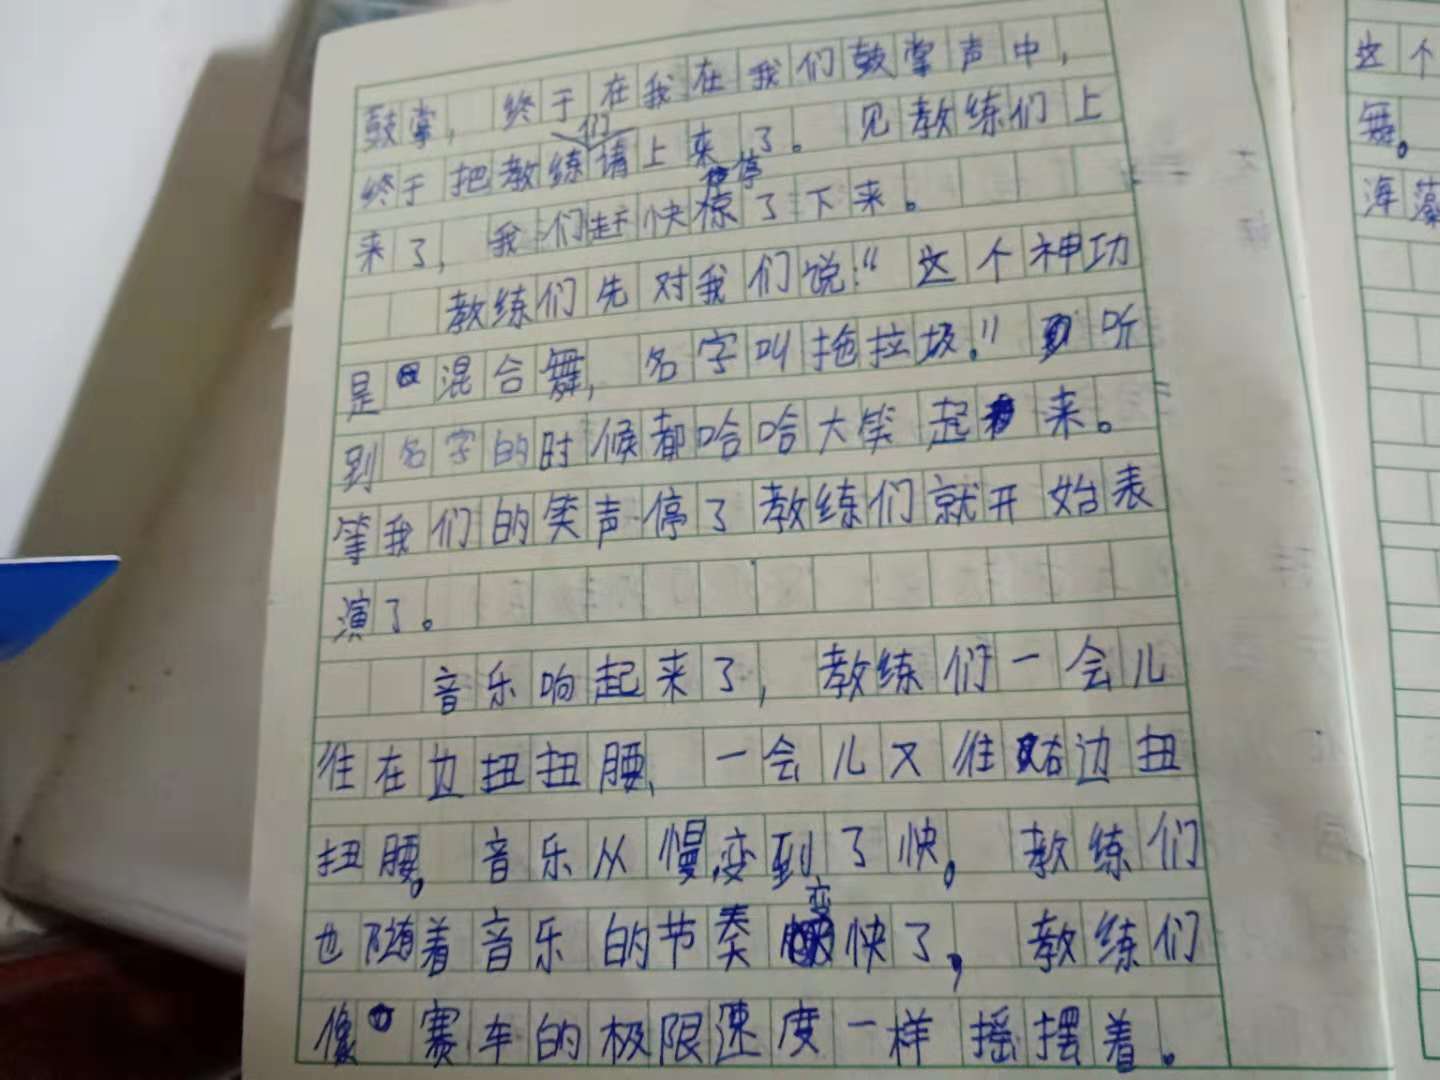 鼓掌，终于在我在我们鼓掌声中，
终于把教练们请上来了。见教练们上
来了，我们赶快停了下来。
教练们先对我们说：“这个神功
是混合舞，名字叫拖拉圾。”听
到名字的时候都哈哈大笑起来。
等我们的笑声停了教练们就开始表
演了。
音乐响起来了，教练们一会儿
往在边扭扭腰，一会儿又往右边扭
扭腰。音乐从慢变到了快。教练们
也随着音乐的节奏变快了，教练们
像赛车的极限速度一样摇摆着。
这个
舞。
海藻